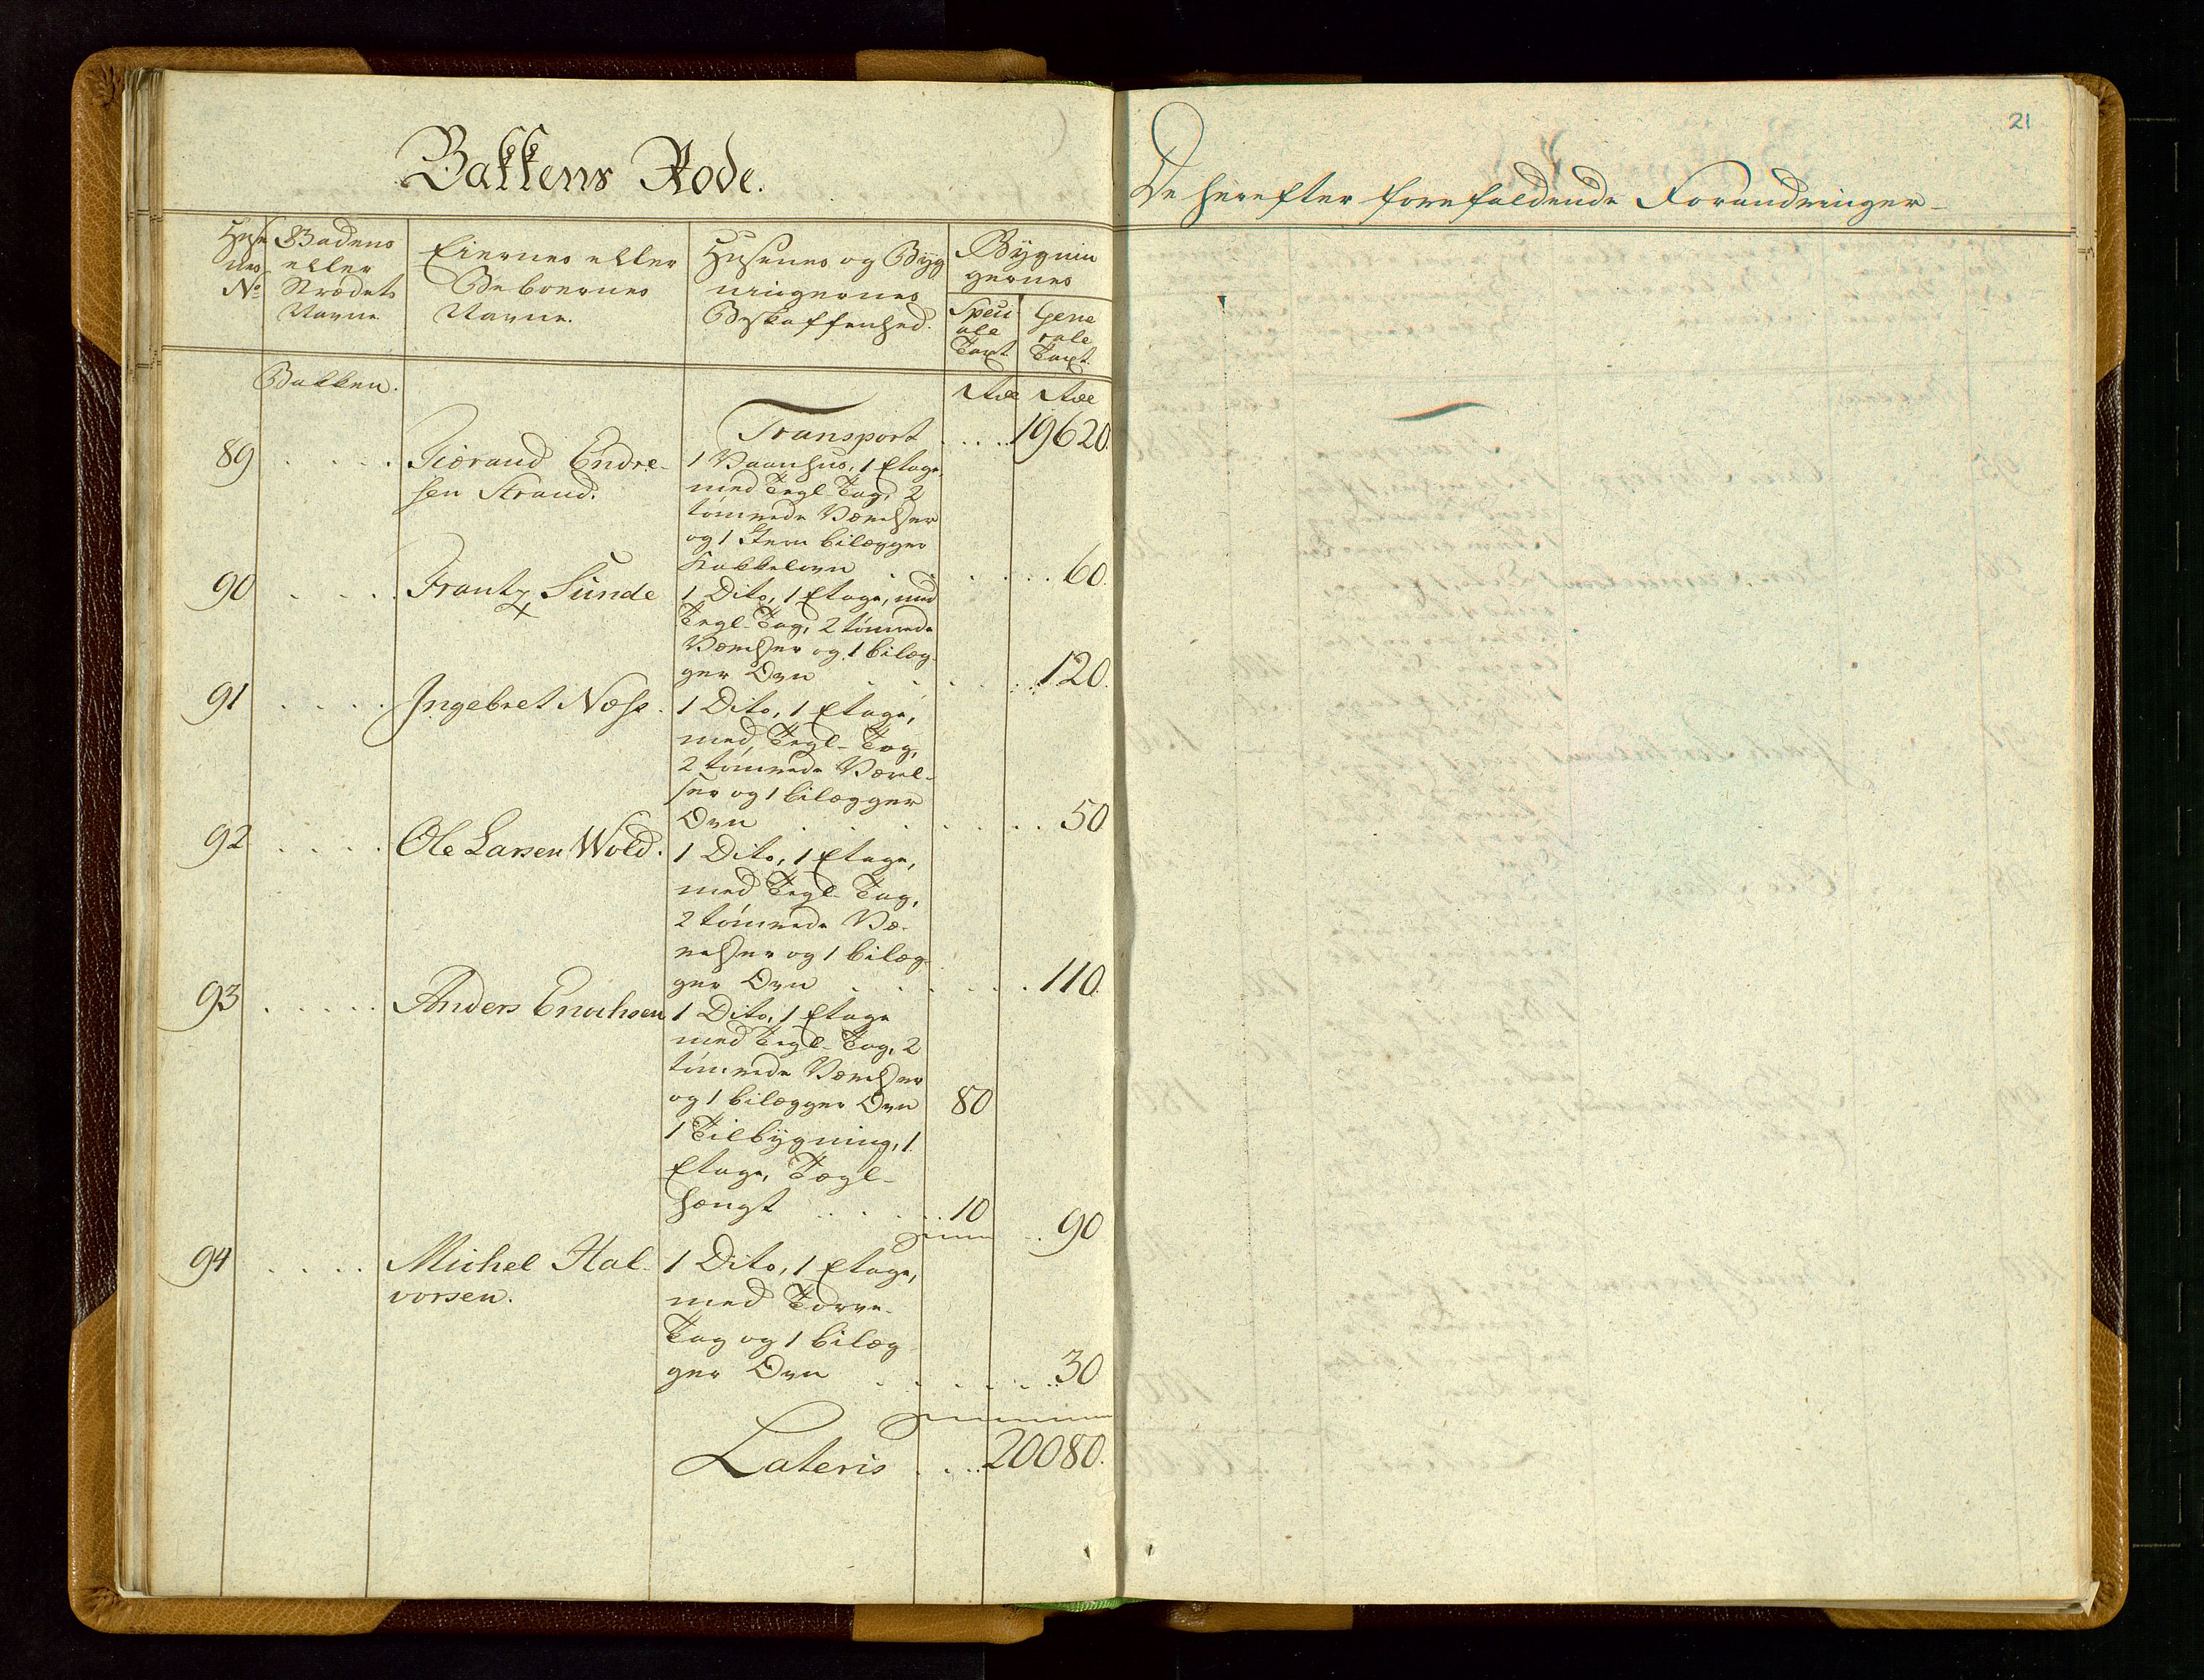 Bakkens Rode.
Huse
nes
No
Gadens
eller
Strædets
Navne
Eiernes eller
Beboernes
Navne.
Husenes og Byg
ningernes
Beskaffenhed.
Bygnin
gernes
Speci
ale
Taxt.
Gene
rale
Taxt.
Bakken.
Rdl Rdl
Transport .... 19620.
89 .... Tiørand Endre-
sen Strand.
1 Vaanhus, 1 Etage,
med Tegl-Tag, 2
tømrede Værelser
og 1 Jern bilægger
Kakkelovn .... 60.
90 .... Frantz Sünde
1 Dito, 1 Etage, med
Tegl-Tag, 2 tømrede
Værelser og 1 bilæg-
ger Ovn .... 120.
91 .... Jngebret Næss.
1 Dito, 1 Etage,
med Tegl-Tag,
2 tømrede Værel-
ser og 1 bilægger
Ovn .... 50
92 .... Ole Larsen Wold.
1 Dito, 1 Etage,
med Tegl-Tag,
2 tømrede Væ-
relser og 1 bilæg-
ger Ovn .... 110.
93 .... Anders Enochsen
1 Dito, 1 Etage
med Tegl-Tag, 2
tømrede Værelser
og 1 bilægger Ovn 80
1 Tilbygning, 1
Etage, Tægl-
hængt .... 10 .. 90
94 .... Michel Hal-
vorsen.
1 Dito, 1 Etage,
med Torve-
Tag og 1 bilæg
ger Ovn .... 30
Lateris .... 20080.
21
De herefter forefaldende Forandringer